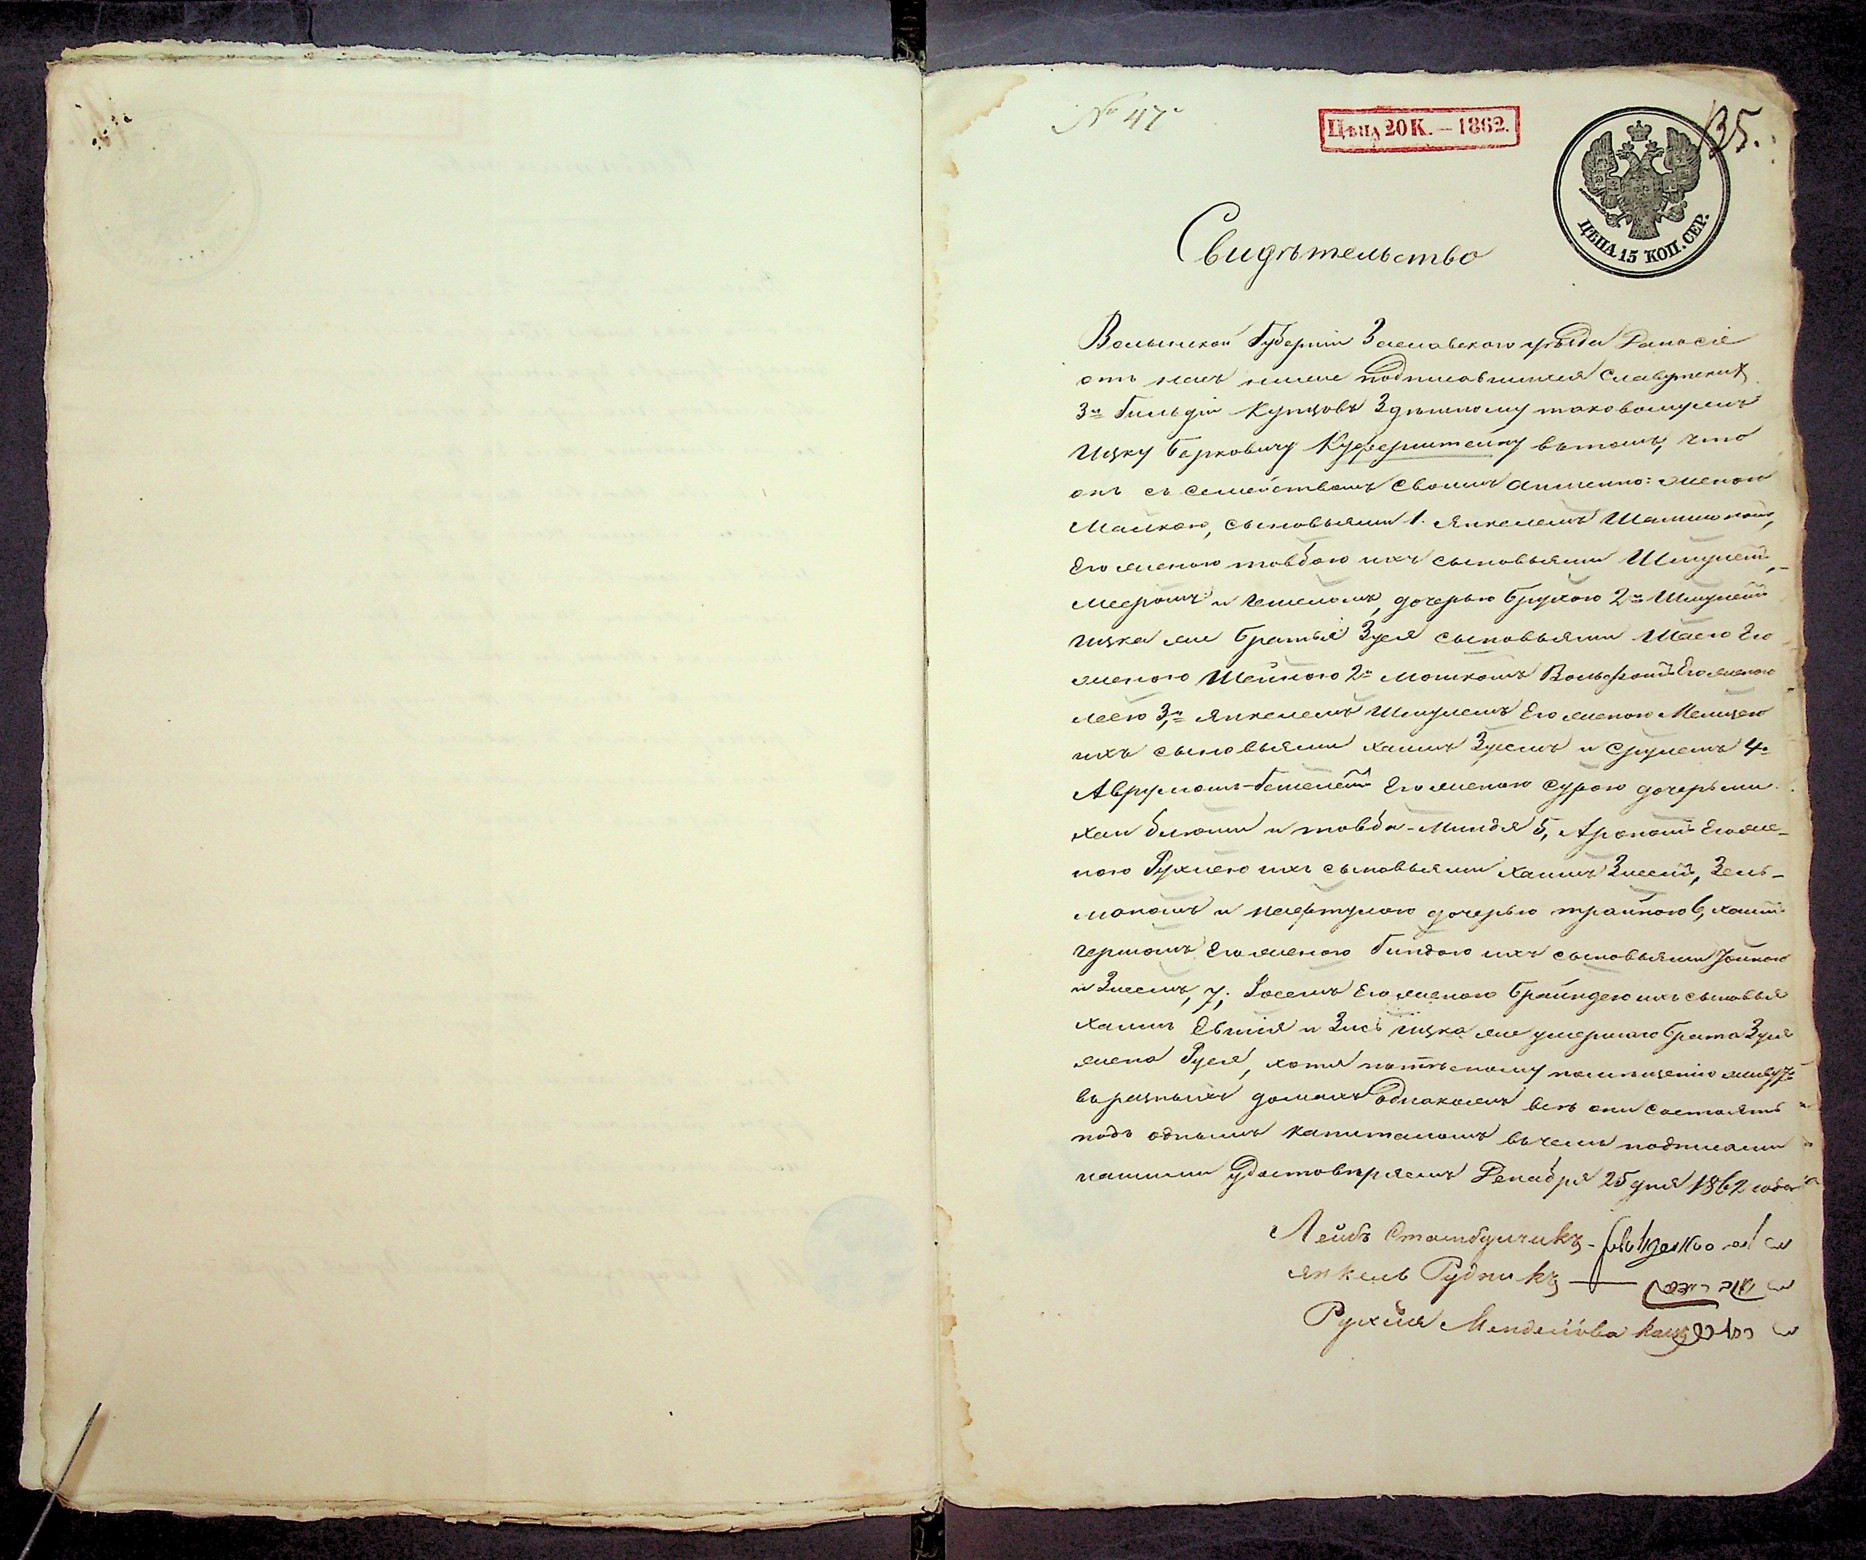 № 47
Цѣна 20 К. — 1862.
135.
ЦѢНА 15 КОП. СЕР.
Свидѣтельство
Волынской Губерніи Заславскаго уѣзда Дано сіе
отъ насъ ниже подписавшихся Славутскихъ
3й Гильдіи Купцовъ Здѣшному таковомужъ
Ицку Берковичу Куферштейну вътомъ, что
онъ съ семействомъ своимъ аименно: женою
Малкою, сыновьями 1. Янкелемъ Шлиомою,
Его женою товбою ихъ сыновьями Шмулемъ,
Мееромъ и Гешелемъ, дочерью Брухою 2й Шмулемъ
Ицка же братья Зуся сыновьями Шаею Его
женою Шейною 2й Мошкомъ Вольфомъ Его женою
Леею 3й Янкелемъ Шмулемъ Его женою Мелицею
ихъ сыновьями хаимъ Зусемъ и Срулемъ 4й
Аврумомъ-Гешелемъ Его женою Сурою дочерьми
хаи блюмы и товба-Миндя 5, Арономъ Его же-
ною Рухлею ихъ сыновьями Хаимъ Зисемъ, Зель-
маномъ и Нафтулою дочерью трайною 6, хаимъ
Гершомъ Его женою Гиндою ихъ сыновьями Іойною
и Зисемъ, 7, Іосемъ Его женою Брайндею ихъ сыновья
Хаимъ и Зись Ицка же умершаго брата Зуся
жена Руся, хотя потѣсному помѣщенію живутъ
въ разныхъ домахъ Однакожъ всѣ они состоятъ
подъ однымъ капиталомъ вчемъ подписами
нашими Удостовѣряемъ Декабря 25 дня 1862 года
Лейбъ Стамбульчикъ
Янкель Рудникъ
Рухля Менделёва